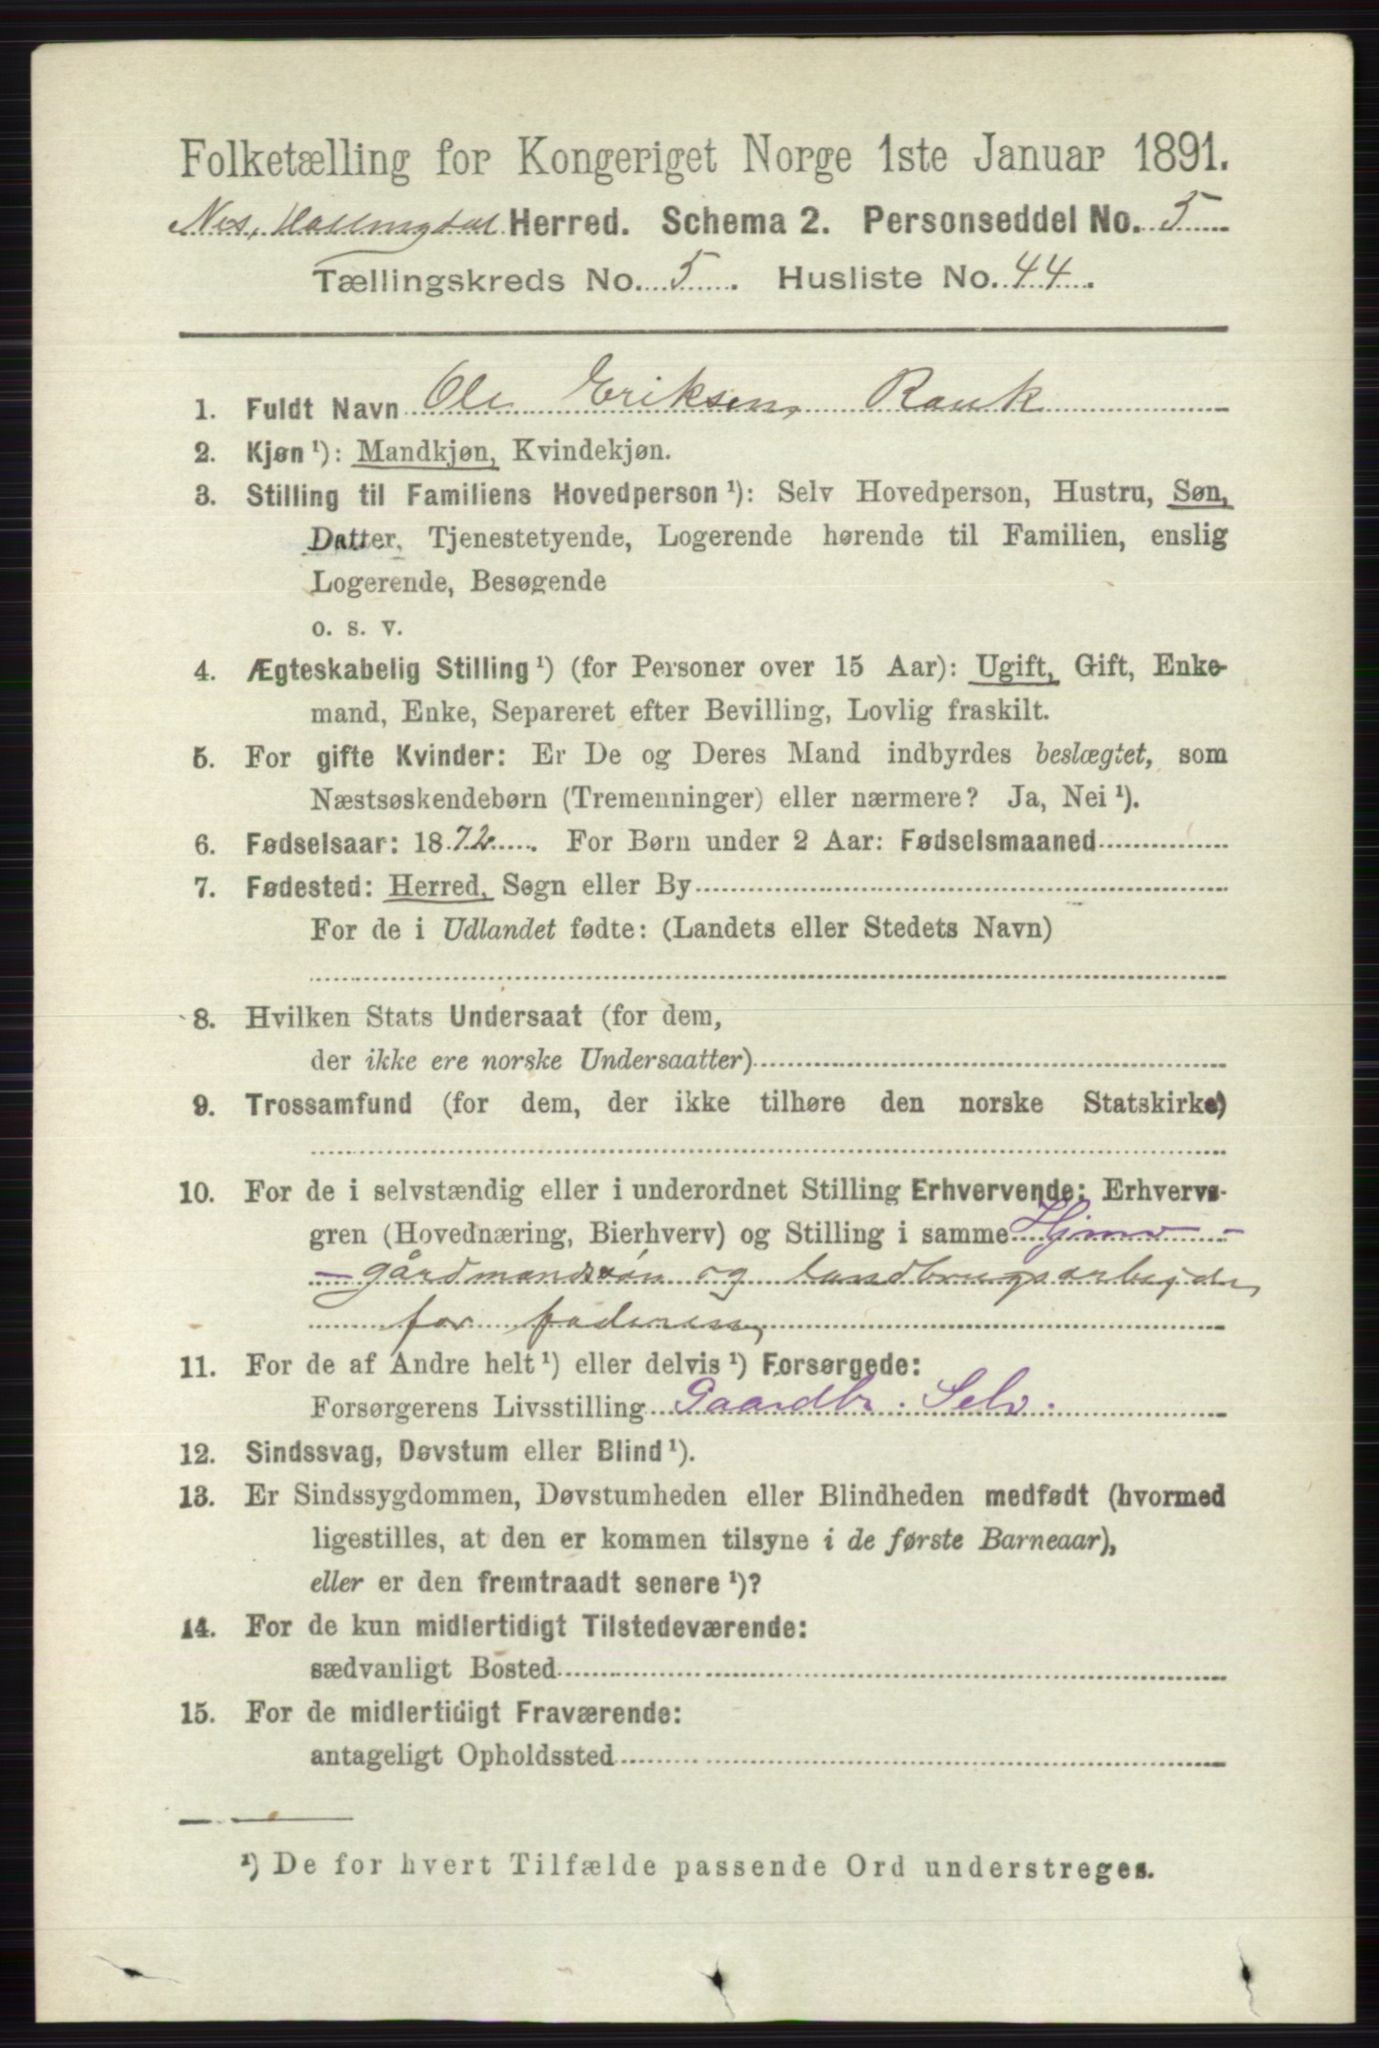 Folketælling for Kongeriget Norge 1ste Januar 1891.
Nes, Hallingdal Herred. Schema 2. Personseddel No. 5
Tællingskreds No. 5. Husliste No. 44.
1. Fuldt Navn Ole Eriksen Rauk
2. Kjøn ¹): Mandkjøn, Kvindekjøn.
3. Stilling til Familiens Hovedperson ¹): Selv Hovedperson, Hustru, Søn,
Datter, Tjenestetyende, Logerende hørende til Familien, enslig
Logerende, Besøgende
o. s. v.
4. Ægteskabelig Stilling ¹) (for Personer over 15 Aar): Ugift, Gift, Enke-
mand, Enke, Separeret efter Bevilling, Lovlig fraskilt.
5. For gifte Kvinder: Er De og Deres Mand indbyrdes beslægtet, som
Næstsøskendebørn (Tremenninger) eller nærmere? Ja, Nei ¹).
6. Fødselsaar: 1872. For Børn under 2 Aar: Fødselsmaaned
7. Fødested: Herred, Sogn eller By
For de i Udlandet fødte: (Landets eller Stedets Navn)
8. Hvilken Stats Undersaat (for dem,
der ikke ere norske Undersaatter)
9. Trossamfund (for dem, der ikke tilhøre den norske Statskirke)
10. For de i selvstændig eller i underordnet Stilling Erhvervende: Erhvervs-
gren (Hovednæring, Bierhverv) og Stilling i samme
- gårdmandssøn og landbrugsarbejder
for faderen,
11. For de af Andre helt ¹) eller delvis ¹) Forsørgede:
Forsørgerens Livsstilling Gaardbr. Selv.
12. Sindssvag, Døvstum eller Blind ¹).
13. Er Sindssygdommen, Døvstumheden eller Blindheden medfødt (hvormed
ligestilles, at den er kommen tilsyne i de første Barneaar),
eller er den fremtraadt senere ¹)?
14. For de kun midlertidigt Tilstedeværende:
sædvanligt Bosted
15. For de midlertidigt Fraværende:
antageligt Opholdssted
¹) De for hvert Tilfælde passende Ord understreges.